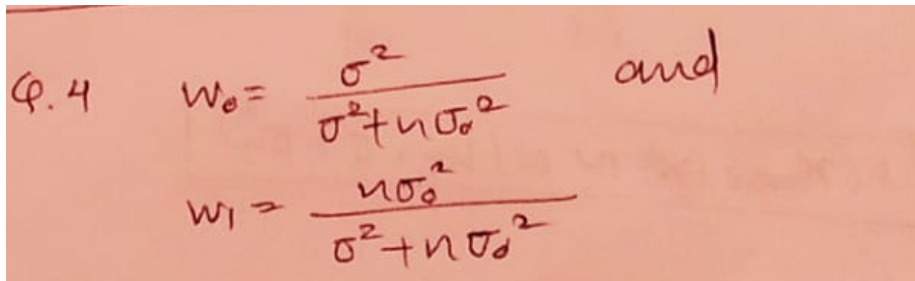 Q.4 W₀ = σ² / (σ² + nσ₀²) and
W₁ = nσ₀² / (σ² + nσ₀²)